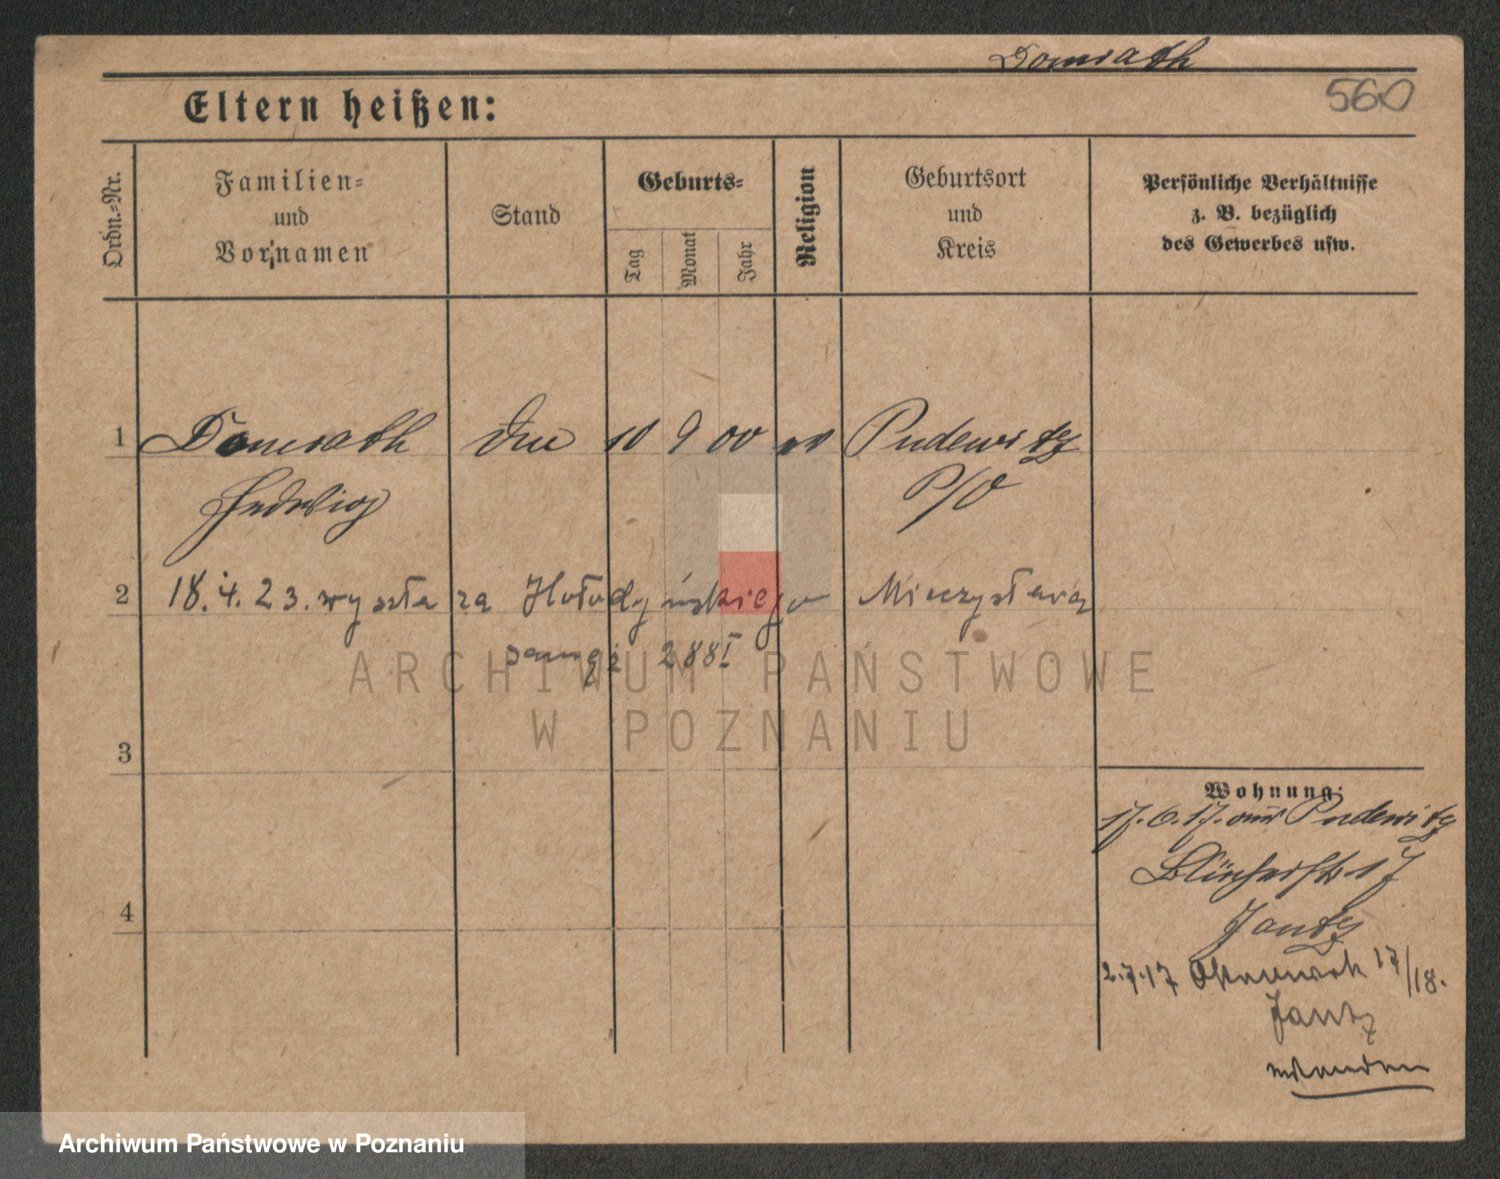 Domrath
560
Eltern heißen:
Ordn.-Nr.
Familien-
und
Vornamen
Stand
Geburts-
Tag
Monat
Jahr
Religion
Geburtsort
und
Kreis
Persönliche Verhältnisse
z. B. bezüglich
des Gewerbes usw.
1 Domrath 10 9 00 Pudewitz
Hedwig P/O
2 18. 4. 23. wyszła za Hołodyńskiego Mieczysława
288I
ARCHIWUM PAŃSTWOWE
W POZNANIU
3
Wohnung:
17. 6. 17. aus Pudewitz
17
Jantz
4
2.7.17 17/18.
Jantz
Archiwum Państwowe w Poznaniu